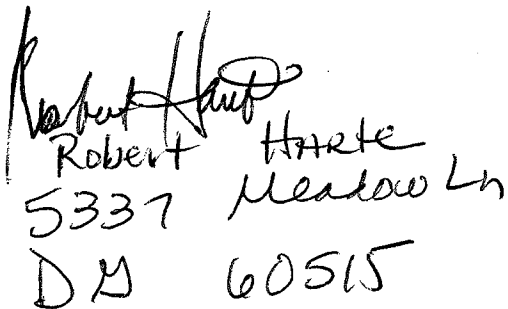 Robert Harte
Robert HARTE
5337 Meadow Ln
DG 60515